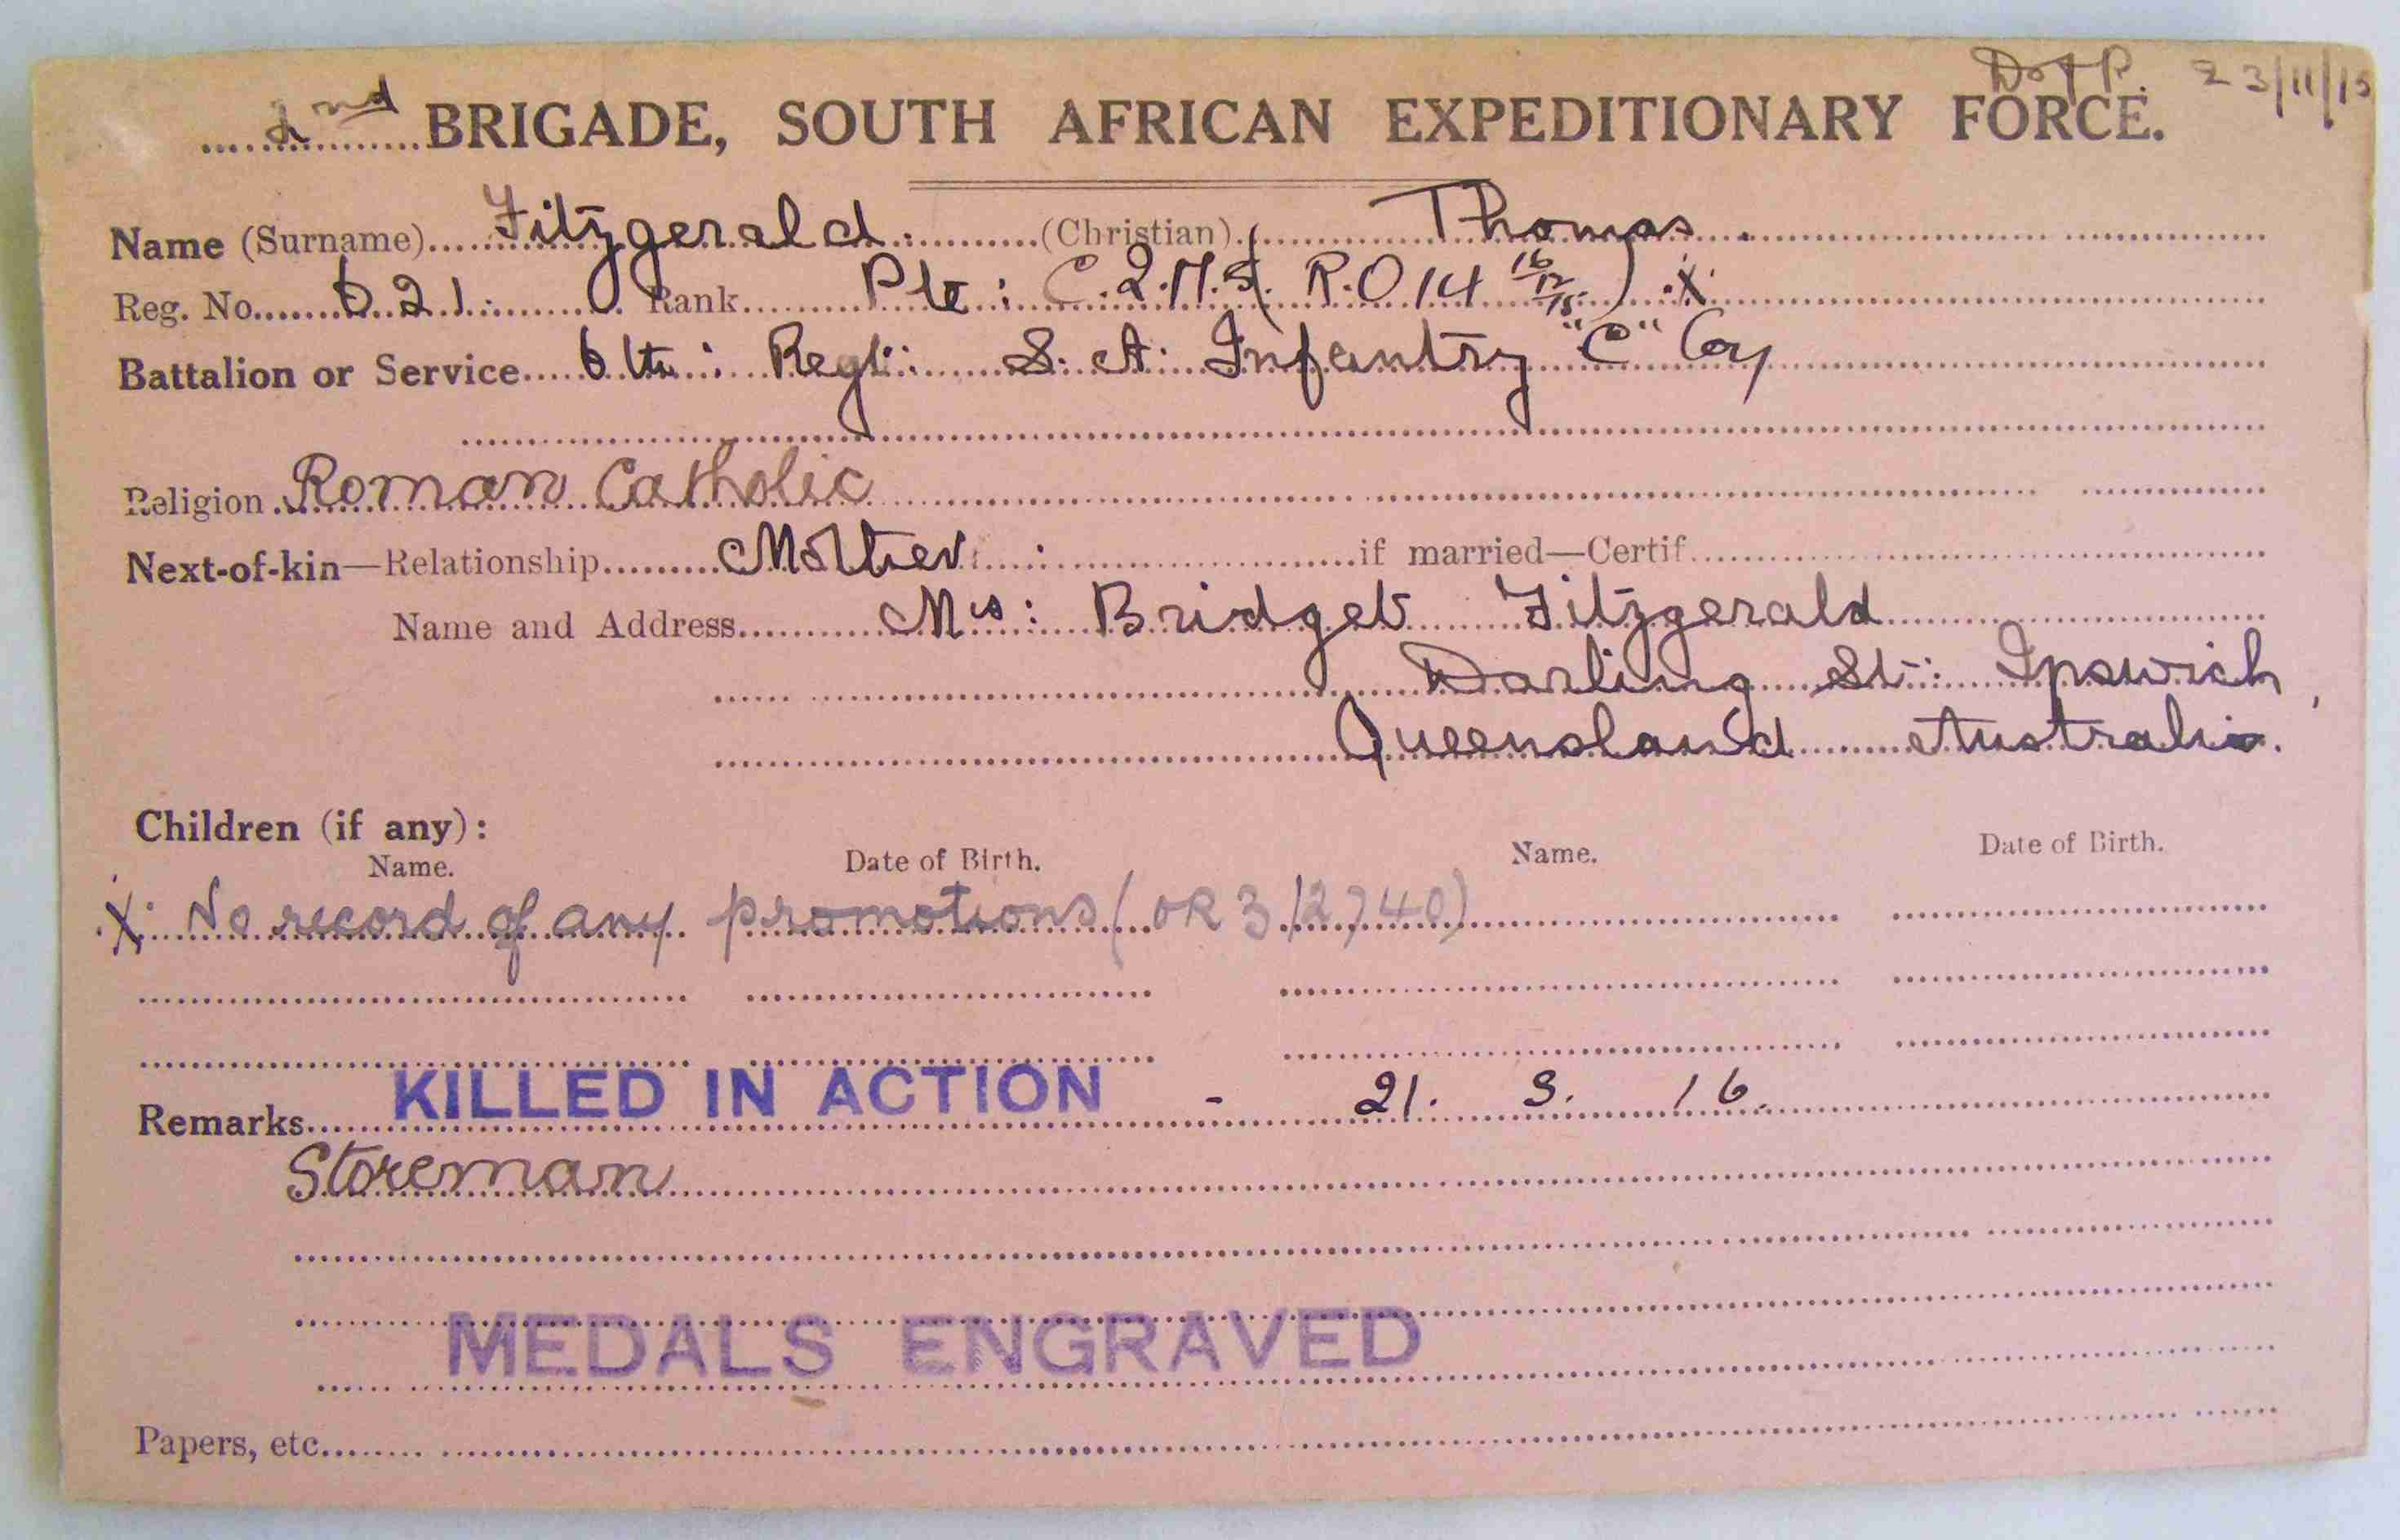 D of P. 23/11/15
2nd BRIGADE, SOUTH AFRICAN EXPEDITIONARY FORCE.
Name (Surname) Fitzgerald. (Christian) Thomas.
Reg. No. 621. Rank Pte: C.Q.M.S. (R.O 14 16/12/15) X
Battalion or Service 6th: Regt: S. A. Infantry "C" Coy
Religion Roman Catholic
Next-of-kin—Relationship Mother: if married—Certif.
Name and Address Mrs: Bridget Fitzgerald
Darling St: Ipswich,
Queensland Australia.
Children (if any):
Name. Date of Birth. Name. Date of Birth.
X: No record of any promotions (OR 3/2740)
Remarks KILLED IN ACTION - 21. 3. 16.
Storeman
MEDALS ENGRAVED
Papers, etc.